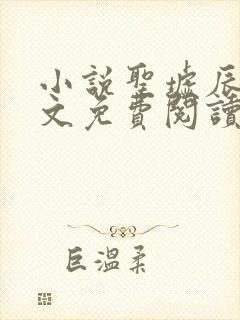 小說聖墟辰
文免費閱讀
巨溫柔